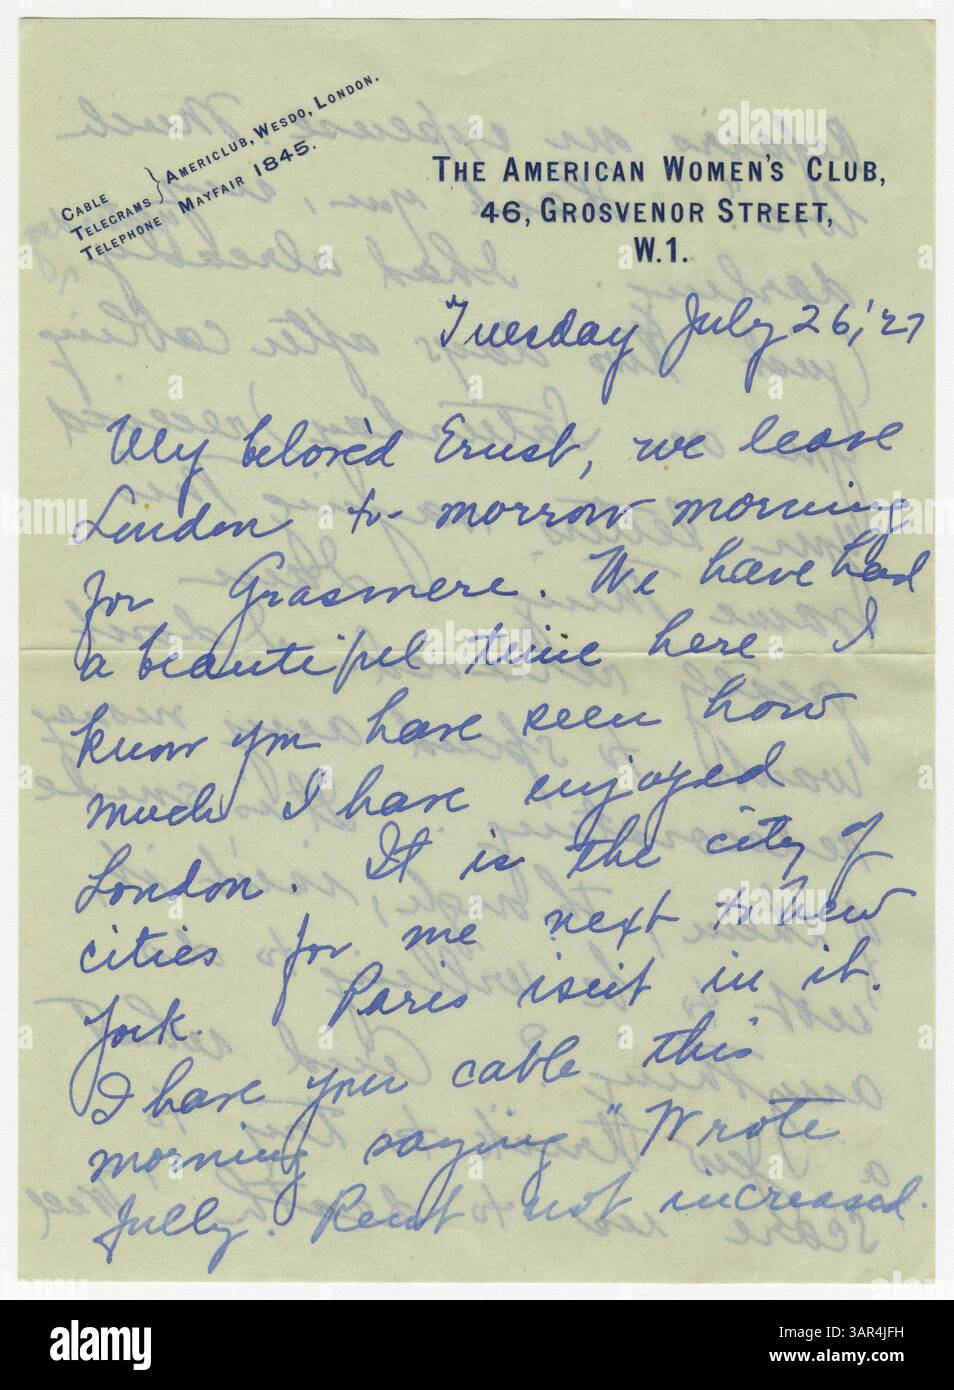 CABLE
TELEGRAMS } AMERICLUB, WESDO, LONDON.
TELEPHONE MAYFAIR 1845.
THE AMERICAN WOMEN'S CLUB,
46, GROSVENOR STREET,
W.1.
Tuesday July 26, '27
My beloved Ernest, we leave
London to-morrow morning
for Grasmere. We have had
a beautiful time here. I
know you have seen how
much I have enjoyed
London. It is the city of
cities for me next to New
York. Paris isn't in it.
I have your cable this
morning saying "Wrote
fully. Rent not increased.
alamy
Image ID: 3AR4JFH
www.alamy.com